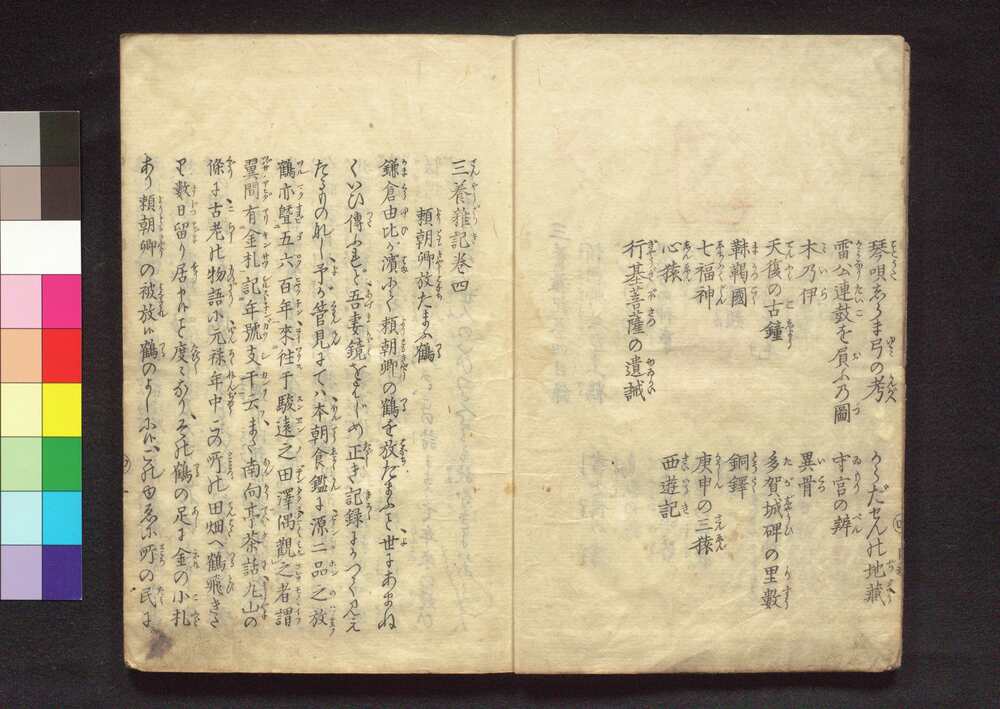 琴唄あらま弓の考
雷公連鼓を負ふの圖
木乃伊
天復の古鐘
靺鞨國
七福神
心猿
行基菩薩の遺誡
からだせんの地藏
守宮の辨
異骨
多賀城碑の里數
銅鐸
庚申の三猿
西遊記
三養雜記卷四
頼朝卿放たまふ鶴
鎌倉由比が濱にて頼朝卿の鶴を放たまふこと世にあまね
くいひ傳ふれど吾妻鏡をはじめ正き記録にかつて見え
たるものなし予が管見にては本朝食鑑に源二品之放
鶴亦曁五六百年來往于駿遠之田澤偶觀之者謂
翼間有金札記年號支干云また南向亭茶話丸山の
條に古老の物語に元祿年中この所の田畑へ鶴飛きた
り數日留り居けること度々なりその鶴の足に金の小札
あり頼朝卿の被放し鶴のよしにてこの由ゑに町の民に